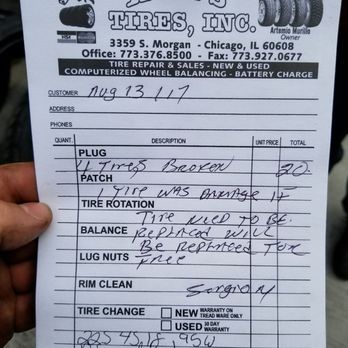 TIRES, INC.
Artemio Murillo
Owner
3359 S. Morgan - Chicago, IL 60608
Office: 773.376.8500 - Fax: 773.927.0677
TIRE REPAIR & SALES - NEW & USED
COMPUTERIZED WHEEL BALANCING - BATTERY CHARGE
CUSTOMER Aug 13 / 17
ADDRESS
PHONES
QUANT. DESCRIPTION UNIT PRICE TOTAL
PLUG
4 Tires Broken 20-
PATCH
1 Tire was
TIRE ROTATION
Tire need to be
BALANCE replaced will
Be replaced for
LUG NUTS Free
RIM CLEAN
TIRE CHANGE NEW WARRANTY ON TREAD WARE ONLY
USED 30 DAY WARRANTY
225 45 18, 95W